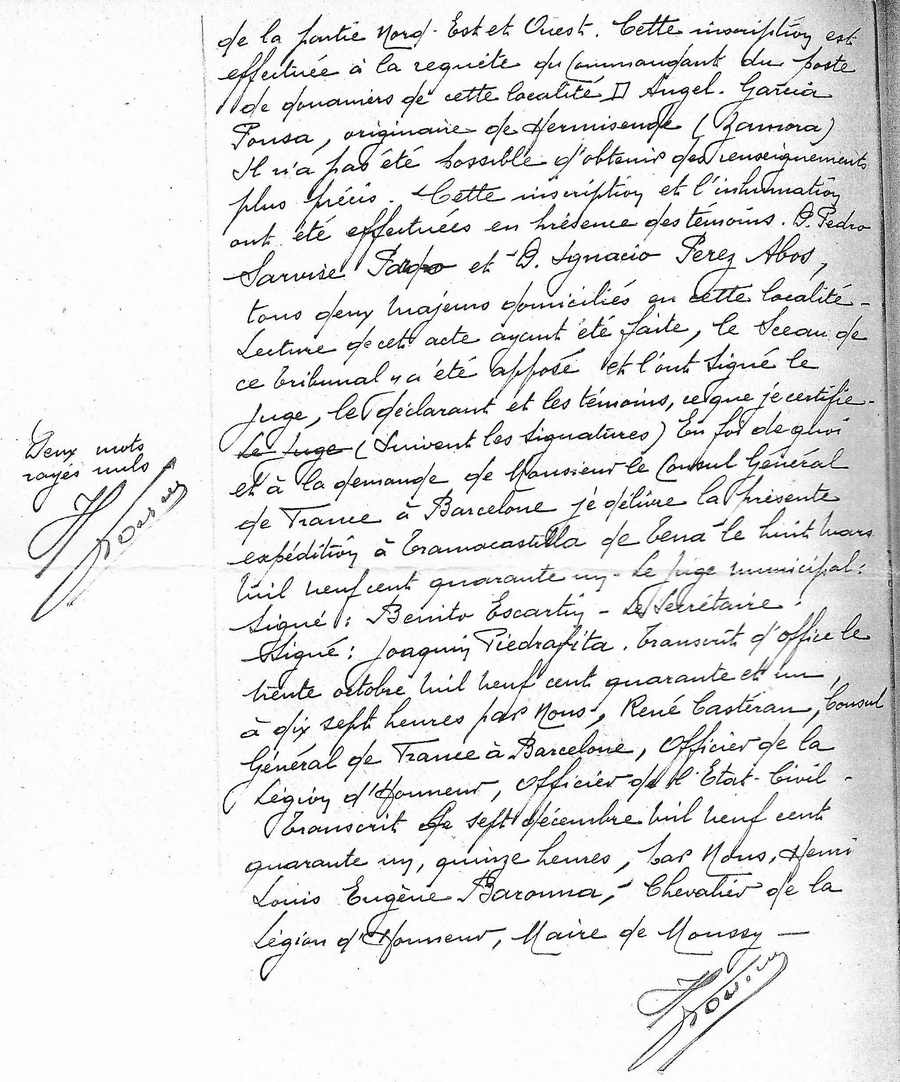 de la partie Nord-Est et Ouest. Cette inscription est
effectuée à la requête du Commandant du poste
de douaniers de cette localité D Angel. Garcia
Pousa, originaire de Hermisende (Zamora)
Il n'a pas été possible d'obtenir des renseignements
plus précis. Cette inscription et l'inhumation
ont été effectuées en présence des témoins. D. Pedro
Sarvise et D. Ignacio Perez Abos,
tous deux majeurs domiciliés en cette localité -
Lecture de cet acte ayant été faite, le Sceau de
ce tribunal y a été apposé et l'ont signé le
Juge, le déclarant et les témoins, ce que je certifie -
Le Juge (Suivent les signatures) En foi de quoi
Deux mots
rayés nuls
et à la demande de Monsieur le Consul Général
de France à Barcelone je délivre la présente
expédition à Tramacastilla de Tena le huit Mars
Mil neuf cent quarante un - Le Juge municipal :
Signé : Benito Escartin - Le Secrétaire :
Signé : Joaquin Piedrafita. Transcrit d'office le
trente octobre Mil neuf cent quarante et un,
à dix sept heures par Nous, René Castéran, Consul
Général de France à Barcelone, Officier de la
Légion d'Honneur, Officier de l'Etat-Civil -
Transcrit le sept décembre Mil neuf cent
quarante un, quinze heures, par Nous, Henri
Louis Eugène Baronna, Chevalier de la
Légion d'Honneur, Maire de Moussy —